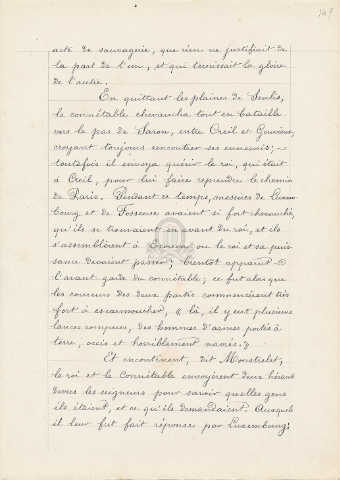 147
acte de sauvagerie, que rien ne justifiait de
la part de l'un, et qui ternissait la gloire
de l'autre.
En quittant les plaines de Senlis,
le connétable chevaucha tout en bataille
vers le pas de Saron, entre Creil et Gouvieux,
croyant toujours rencontrer ses ennemis; -
toutefois il envoya quérir le roi, qui était
à Creil, pour lui faire reprendre le chemin
de Paris. Pendant ce temps, messires de Luxem-
bourg et de Fosseuse avaient si fort chevauché,
qu'ils se trouvaient en avant du roi, et ils
s'assemblèrent à où le roi et sa puis-
sance devaient passer; bientôt apparut
l'avant garde du connétable; ce fut alors que
les coureurs des deux partis commencèrent très
fort à escarmoucher, « là, il y eut plusieurs
lances rompues, des hommes d'armes portés à
terre, occis et horriblement navrés. »
Et incontinent, dit Monstrelet,
le roi et le Connétable envoyèrent deux hérauts
devers les seigneurs pour savoir quelles gens
ils étaient, et ce qu'ils demandaient. Auxquels
il leur fut fait réponse par Luxembourg: